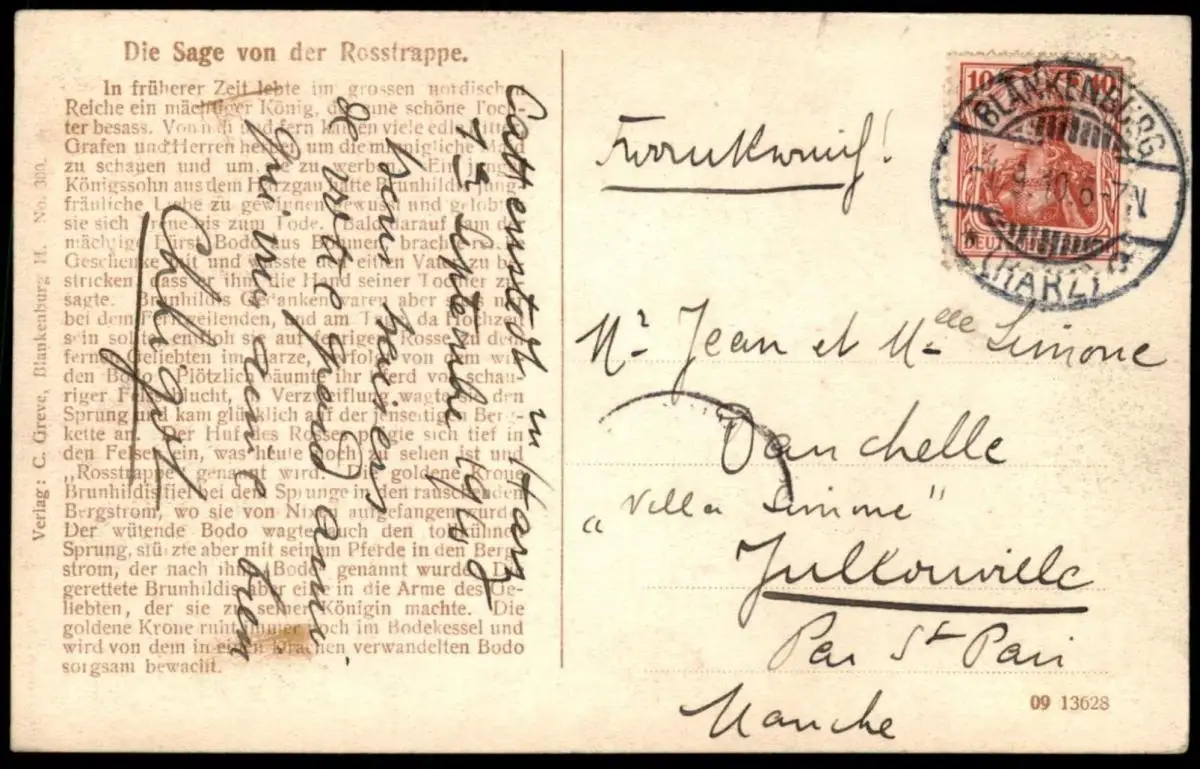 Die Sage von der Rosstrappe.
In früherer Zeit lebte im grossen nordischen
Reiche ein mächtiger König, der eine schöne Toch-
ter besass. Von nah und fern kamen viele edle Ritter
Grafen und Herren herbei, um die minnigliche Maid
zu schauen und um sie zu werben. Ein junger
Königssohn aus dem Harzgau hatte Brunhildis jung-
fräuliche Liebe zu gewinnen gewusst und gelobte
sie sich Treue bis zum Tode. Bald darauf kam der
mächtige Fürst Bodo aus Böhmen, brachte
Geschenke mit und wusste den eitlen Vater zu be-
stricken, dass er ihm die Hand seiner Tochter zu-
sagte. Brunhildis Gedanken waren aber
bei dem Fernweilenden, und am Tage, da Hochzeit
sein sollte, entfloh sie auf feurigem Rosse zu dem
fernen Geliebten im Harze, verfolgt von dem wil-
den Bodo. Plötzlich bäumte ihr Pferd vor schau-
riger Felsschlucht, in Verzweiflung wagte sie den
Sprung und kam glücklich auf der jenseitigen Berg-
kette an. Der Huf des Rosses prägte sich tief in
den Felsen ein, was heute noch zu sehen ist und
„Rosstrappe" genannt wird. Die goldene Krone
Brunhildis fiel bei dem Sprunge in den rauschenden
Bergstrom, wo sie von Nixen aufgefangen wurde.
Der wütende Bodo wagte auch den tollkühnen
Sprung, stürzte aber mit seinem Pferde in den Berg-
strom, der nach ihm „Bode" genannt wurde. Die
gerettete Brunhildis aber eilte in die Arme des Ge-
liebten, der sie zu seiner Königin machte. Die
goldene Krone ruht immer noch im Bodekessel und
wird von dem in einen Drachen verwandelten Bodo
sorgsam bewacht.
Verlag: C. Greve, Blankenburg H. No. 300.
13 Septembre 1910
Bons baisers
de votre grand ami
qui vous aime bien
Frankreich!
Mr Jean et Melle Simone
Danchelle
"Villa Simone"
Jullouville
Par St Pair
Manche
10 10
DEUTSCHES REICH
BLANKENBURG
9.10.6-7N
* (HARZ)
09 13628